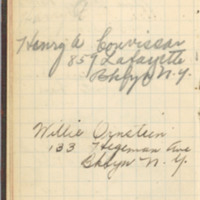 Henry A Couvissar
859 Lafayette
Bklyn N.Y.
Willie Ornstein
133 Hegeman Ave
Bklyn N.Y.